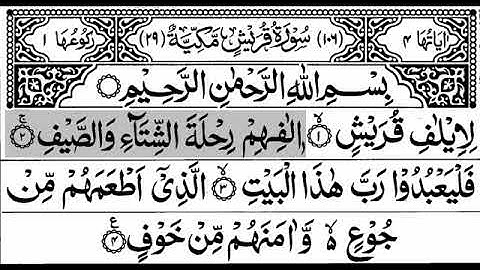 اٰيَاتُهَا ٤ (١٠٦) سُوْرَةُ قُرَيْشٍ مَكِّيَّةٌ (٢٩) رُكُوْعُهَا ١
بِسْمِ اللّٰهِ الرَّحْمٰنِ الرَّحِيْمِ
لِاِيْلٰفِ قُرَيْشٍ ۙ‏﴿۱﴾ اٖلٰفِهِمْ رِحْلَةَ الشِّتَآءِ وَالصَّيْفِ ۚ‏﴿۲﴾
فَلْيَعْبُدُوْا رَبَّ هٰذَا الْبَيْتِ ۙ‏﴿۳﴾ الَّذِيْٓ اَطْعَمَهُمْ مِّنْ
جُوْعٍ ۙ۬ وَّاٰمَنَهُمْ مِّنْ خَوْفٍ ‏﴿۴﴾ ع